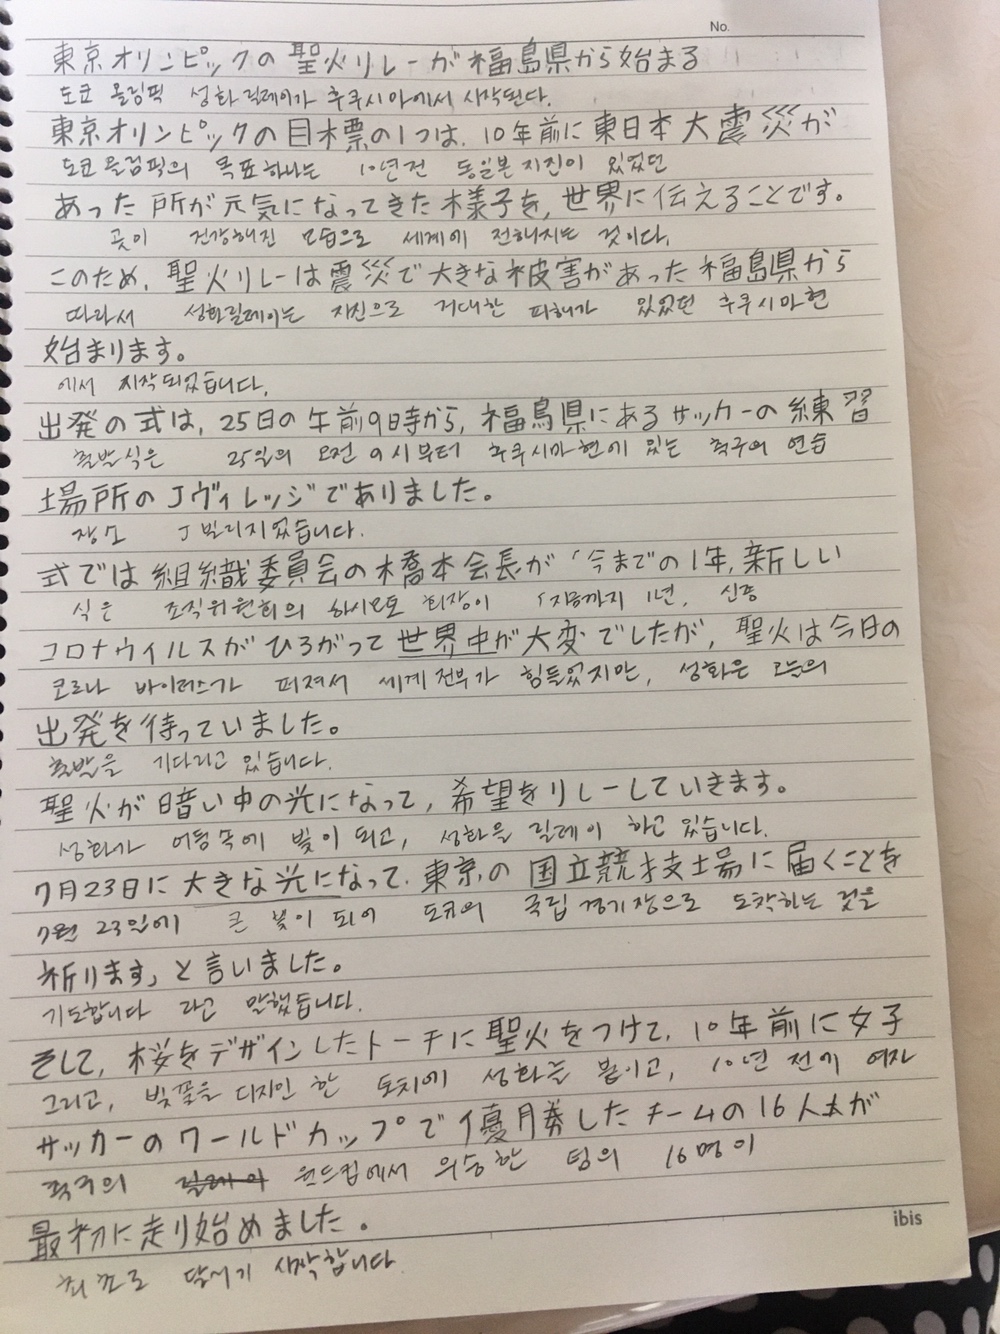 No.
東京オリンピックの聖火リレーが福島県から始まる
도쿄 올림픽 성화 릴레이가 후쿠시마에서 시작된다.
東京オリンピックの目標の1つは、10年前に東日本大震災が
도쿄 올림픽의 목표 하나는 10년전 동일본 지진이 있었던
あった所が元気になってきた様子を、世界に伝えることです。
곳이 건강해진 모습으로 세계에 전해지는 것이다.
このため、聖火リレーは震災で大きな被害があった福島県から
따라서 성화릴레이는 지진으로 거대한 피해가 있었던 후쿠시마현
始まります。
에서 시작되었습니다.
出発の式は、25日の午前9時から、福島県にあるサッカーの練習
출발식은 25일의 오전 9시부터 후쿠시마현에 있는 축구의 연습
場所のJヴィレッジでありました。
장소 J빌리지었습니다.
式では組織委員会の橋本会長が「今までの1年、新しい
식은 조직위원회의 하시모토 회장이 「지금까지 1년, 신종
コロナウィルスがひろがって世界中が大変でしたが、聖火は今日の
코로나 바이러스가 퍼져서 세계 전부가 힘들었지만, 성화은 오늘의
出発を待っていました。
출발을 기다리고 있습니다.
聖火が暗い中の光になって、希望をリレーしていきます。
성화가 어둠속에 빛이 되고, 성화을 릴레이 하고 있습니다.
7月23日に大きな光になって、東京の国立競技場に届くことを
7월 23일에 큰 빛이 되어 도쿄의 국립 경기장으로 도착하는 것을
祈ります」と言いました。
기도합니다 라고 말했습니다.
そして、桜をデザインしたトーチに聖火をつけて、10年前に女子
그리고, 벚꽃을 디자인 한 토치에 성화를 붙이고, 10년 전에 여자
サッカーのワールドカップで優勝したチームの16人が
축구의 월드컵에서 우승한 팀의 16명이
最初に走り始めました。
최초로 달리기 시작합니다.
ibis